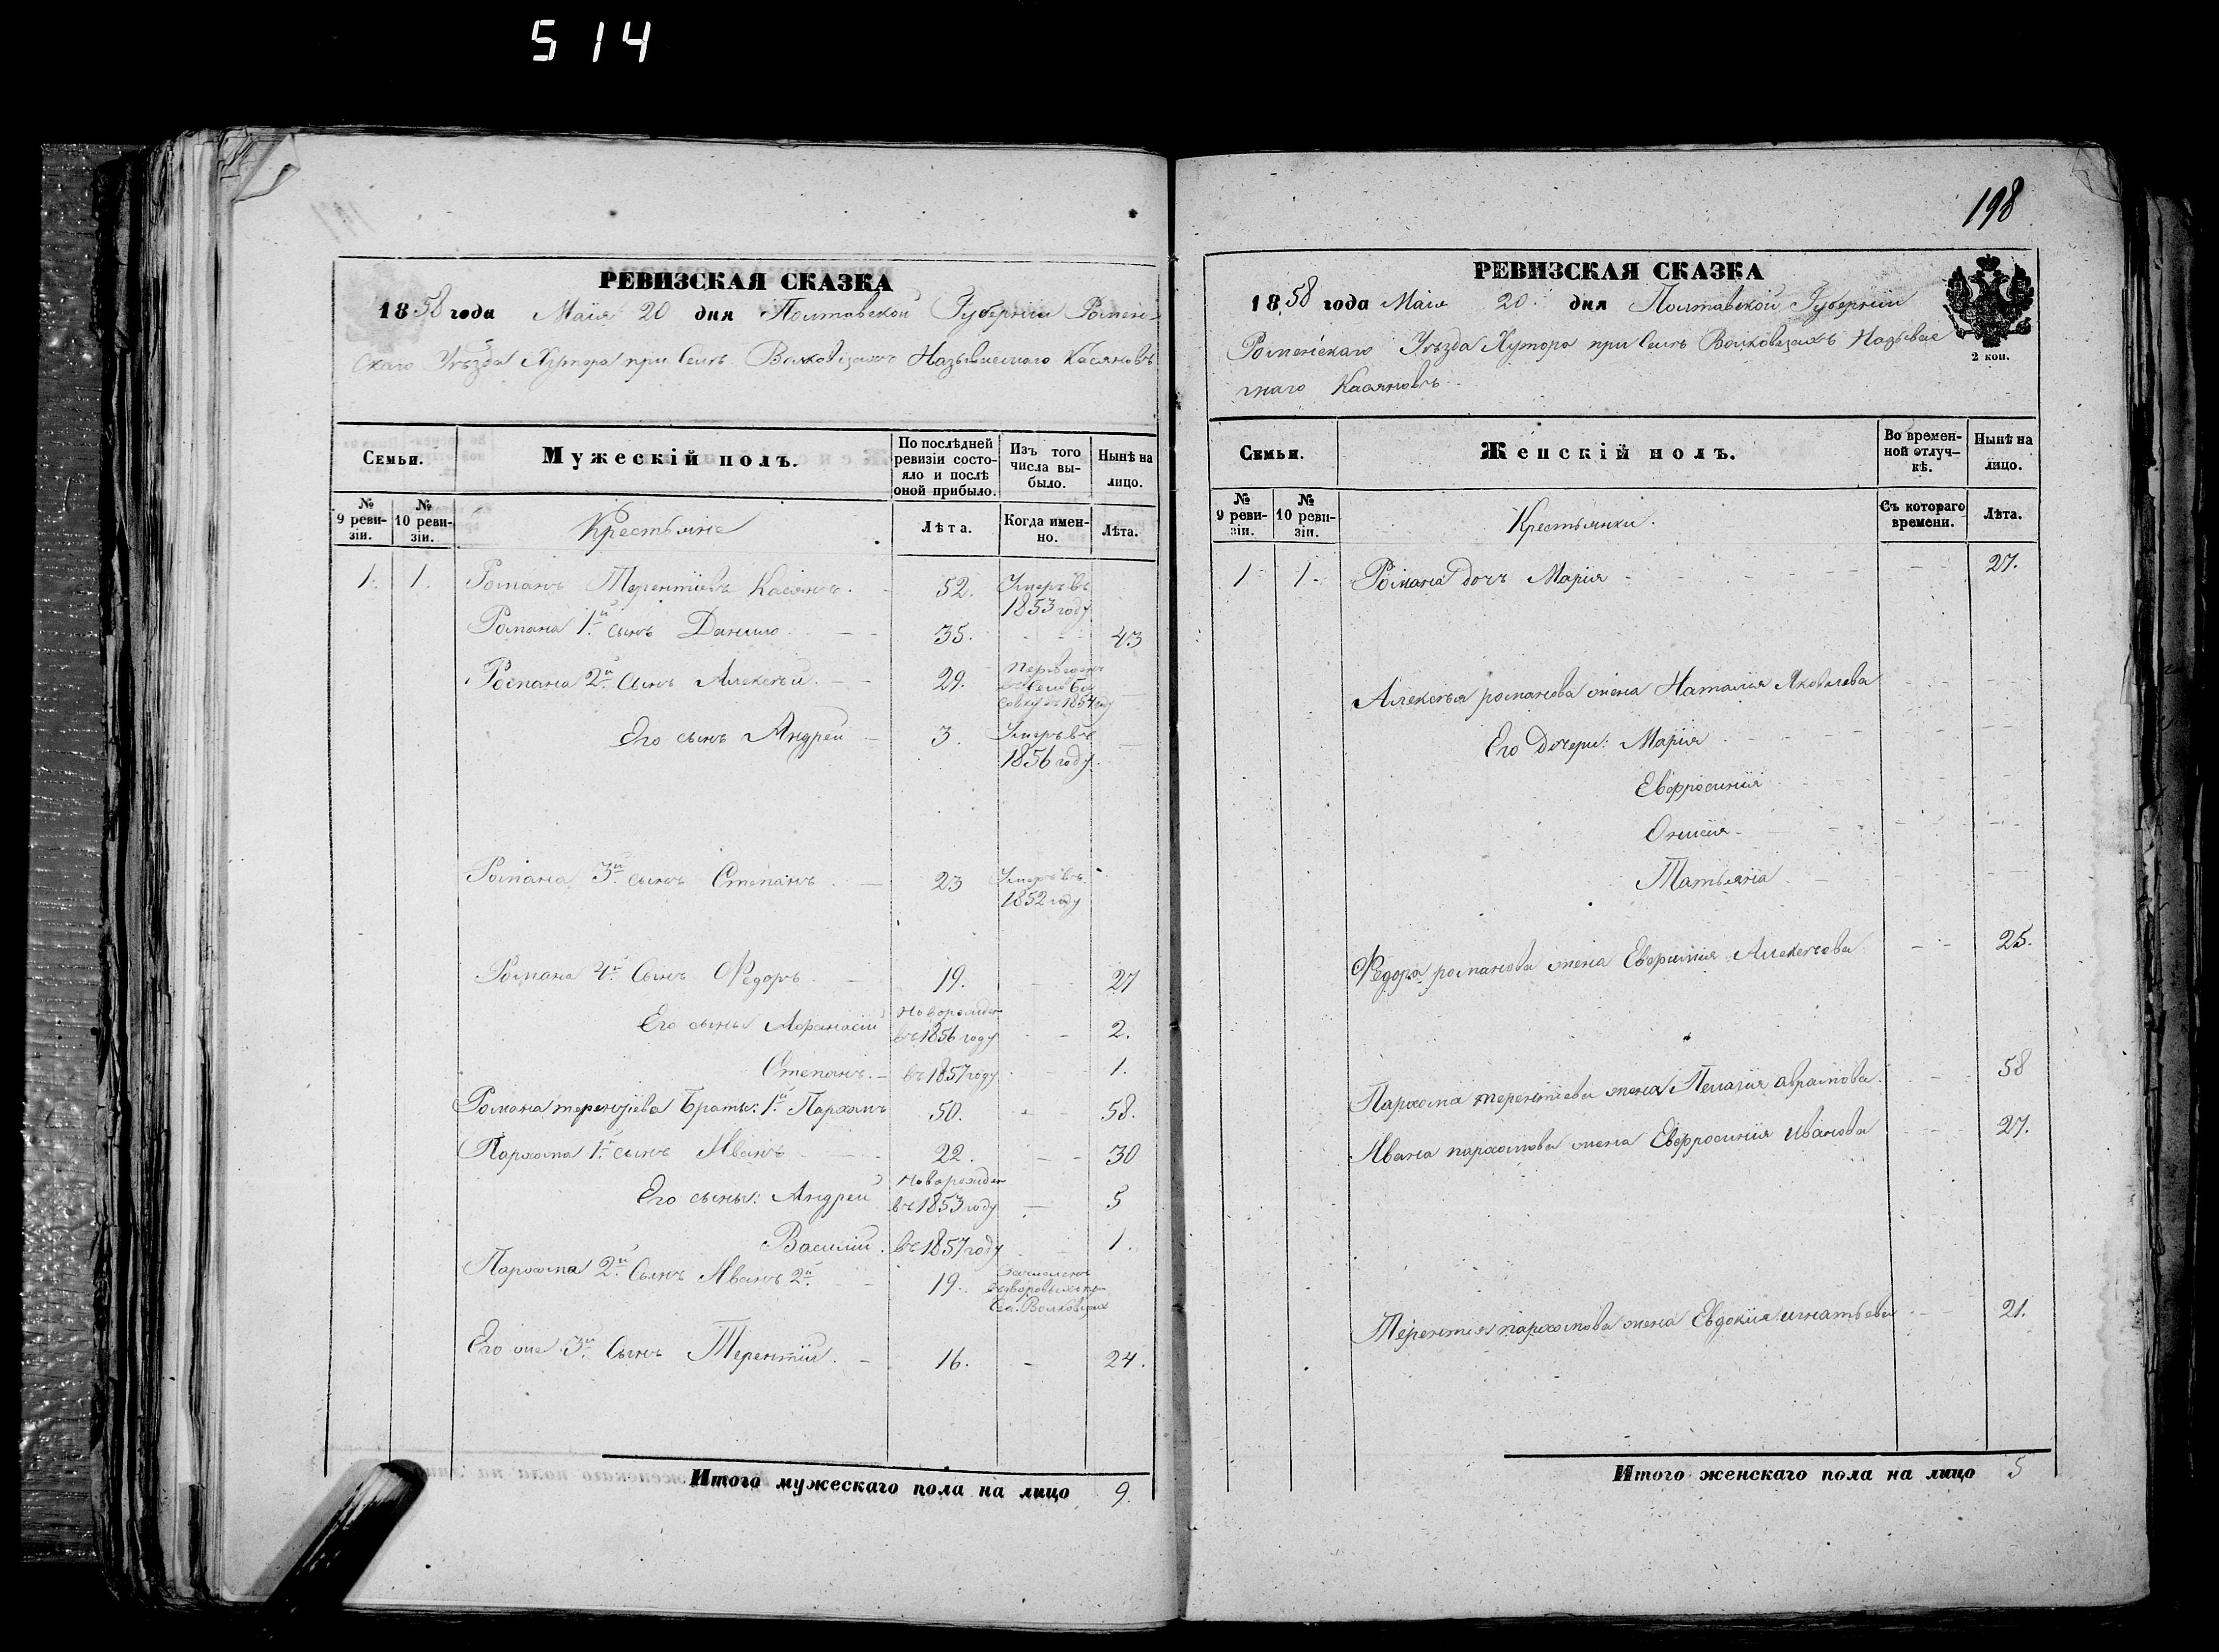 514
РЕВИЗСКАЯ СКАЗКА
1858 года Маія 20 дня Полтавской Губерніи Ромен-
скаго Уѣзда Хутора при Селѣ Волковцахъ Называемаго Касяновъ
Семьи.
Мужескій полъ.
По послѣдней ревизіи состояло и послѣ оной прибыло.
Изъ того числа выбыло.
Нынѣ на лицо.
№ 9 ревизіи.
№ 10 ревизіи.
Крестьяне
Лѣта.
Когда именно.
Лѣта.
1. 1. Романъ Терентіевъ Касянъ. 52. Умеръ въ 1853 году
Романа 1й сынъ Данило 35. 43
Романа 2й Сынъ Алексѣй 29. въ 1854 году
Его сынъ Андрей 3. Умеръ въ 1856 году
Романа 3й сынъ Степанъ 23 Умеръ въ 1852 году
Романа 4й Сынъ Федоръ 19. 27
Его сыны Афанасій Новорожден въ 1856 году 2.
Степанъ. въ 1857 году 1.
Романа терентіева Братъ: 1й Пархомъ 50. 58.
Пархома 1й сынъ Иванъ 22. 30
Его сыны: Андрей Новорожден въ 1853 году 5
Василій. въ 1857 году 1.
Пархома 2й Сынъ Иванъ 2й 19. Сел. Волковцахъ
Его же 3й Сынъ Терентій. 16. 24.
Итого мужескаго пола на лицо 9.
198
РЕВИЗСКАЯ СКАЗКА
1858 года Маія 20 дня Полтавской Губерніи
Роменскаго Уѣзда Хутора при Селѣ Волковцахъ Называе
маго Касяновъ
2 коп.
Семьи.
Женскій полъ.
Во временной отлучкѣ.
Нынѣ на лицо.
№ 9 ревизіи.
№ 10 ревизіи.
Крестьянки.
Съ котораго времени.
Лѣта.
1 1. Романа дочь Марія 27.
Алексѣя романова жена Наталія Яковлева
Его Дочери: Марія
Евфросинія
Татьяна
Федора романова жена Евфимія Алексѣева 25.
Пархома терентіева жена Пелагія аврамова. 58
Ивана пархомова жена Евфросинія Иванова 27.
Терентія пархомова жена Евдокія игнатьева 21.
Итого женскаго пола на лицо 5